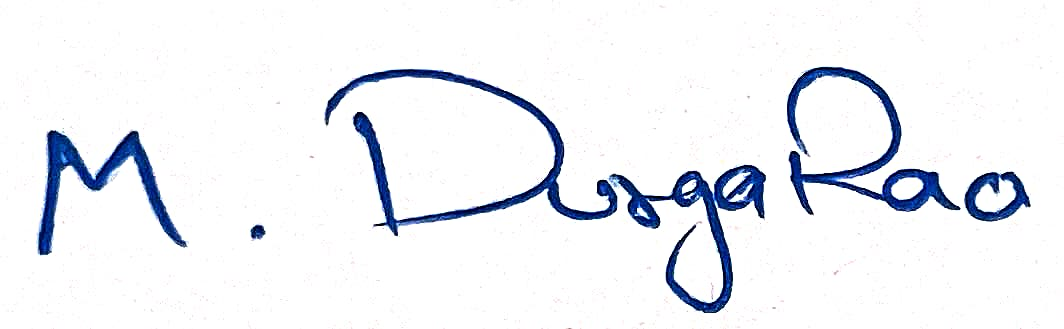 M. Durga Rao